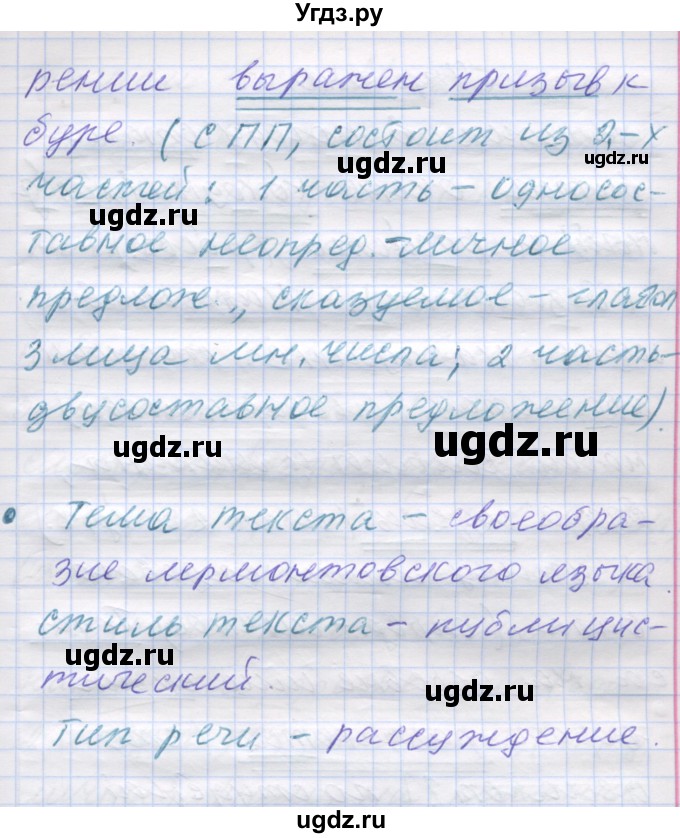 Угдз.ру
рении выражен призыв к
буре. (СПП, состоит из 2-х
частей: 1 часть - односос-
ugdz.ru ugdz.ru
тавное неопред.-личное
предлож., сказуемое - глагол
ugdz.ru ugdz.ru
3 лица мн. числа; 2 часть-
двусоставное предложение).
ugdz.ru ugdz.ru
Тема текста - своеобра-
зие лермонтовского языка.
стиль текста - публицис-
ugdz.ru
тический.
ugdz.ru
Тип речи - рассуждение.
ugdz.ru
ugdz.ru